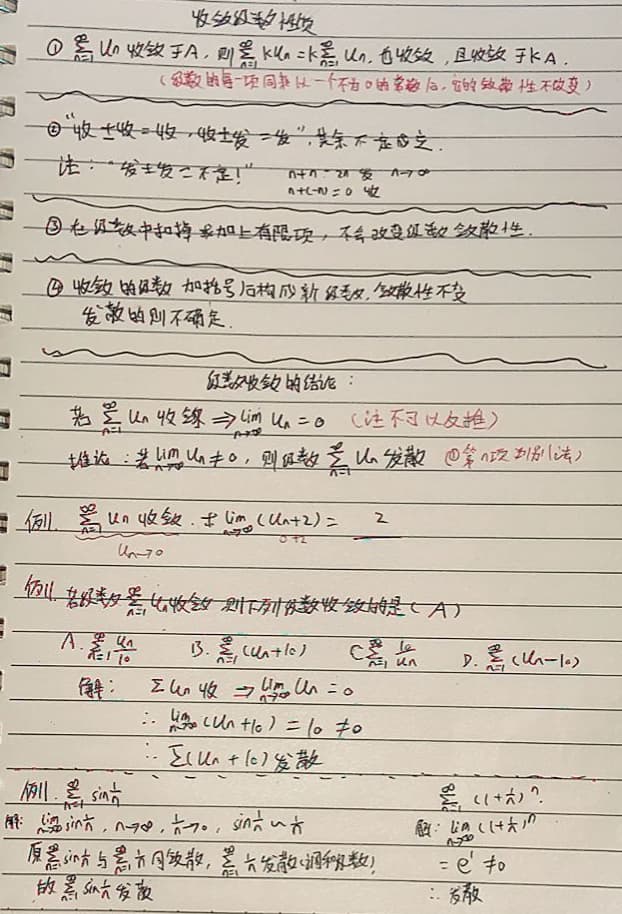 收敛级数性质
① ∑_{n=1}^{∞} Un 收敛于A, 则 ∑_{n=1}^{∞} kUn = k∑_{n=1}^{∞} Un, 也收敛, 且收敛于kA.
(级数的每一项同乘以一个不为0的常数后, 它的敛散性不改变)
② "收±收=收, 收±发=发", 其余不一定成立.
注: "发±发=不定!" n+n=2n 发 n→∞
n+(-n)=0 收
③ 在级数中扣掉或加上有限项, 不会改变级数敛散性.
④ 收敛的级数 加括号后构成新级数, 敛散性不变
发散的则不确定.
级数收敛的结论:
若 ∑_{n=1}^{∞} Un 收敛 ⇒ lim_{n→∞} Un = 0 (注不可以反推)
推论: 若 lim_{n→∞} Un ≠ 0, 则级数 ∑_{n=1}^{∞} Un 发散 (①第n项判别法)
例1. ∑_{n=1}^{∞} Un 收敛. 求 lim_{n→∞} (Un+2) = 2
Un→0 0+2
例1. 若级数 ∑_{n=1}^{∞} Un 收敛 则下列级数收敛的是 (A)
A. ∑_{n=1}^{∞} Un/10 B. ∑_{n=1}^{∞} (Un+10) C ∑_{n=1}^{∞} 10/Un D. ∑_{n=1}^{∞} (Un-10)
解: ∑Un 收 ⇒ lim_{n→∞} Un = 0
∴ lim_{n→∞} (Un+10) = 10 ≠ 0
∴ ∑(Un+10) 发散
例1. ∑_{n=1}^{∞} sin 1/n
解: lim_{n→∞} sin 1/n, n→∞, 1/n→0, sin 1/n ~ 1/n
原 ∑_{n=1}^{∞} sin 1/n 与 ∑_{n=1}^{∞} 1/n 同敛散, ∑_{n=1}^{∞} 1/n 发散(调和级数)
故 ∑_{n=1}^{∞} sin 1/n 发散
∑_{n=1}^{∞} (1+1/n)^n.
解: lim_{n→∞} (1+1/n)^n
= e^1 ≠ 0
∴ 发散